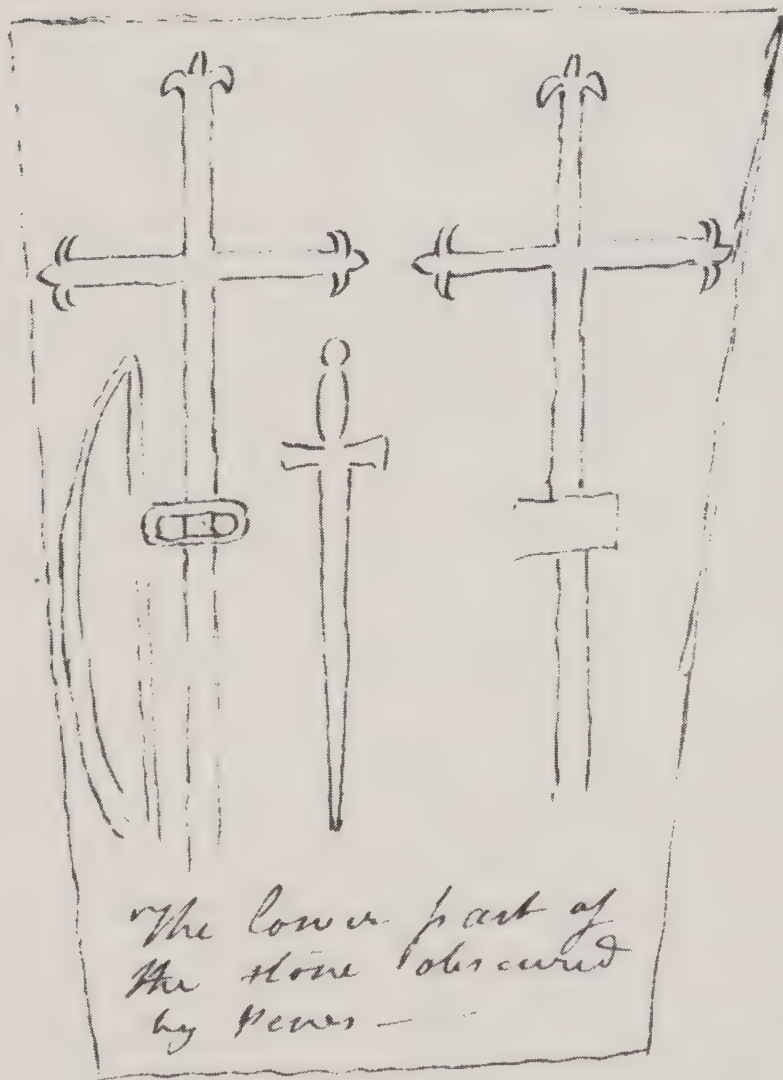 The lower part of
the stone obscured
by Pews —